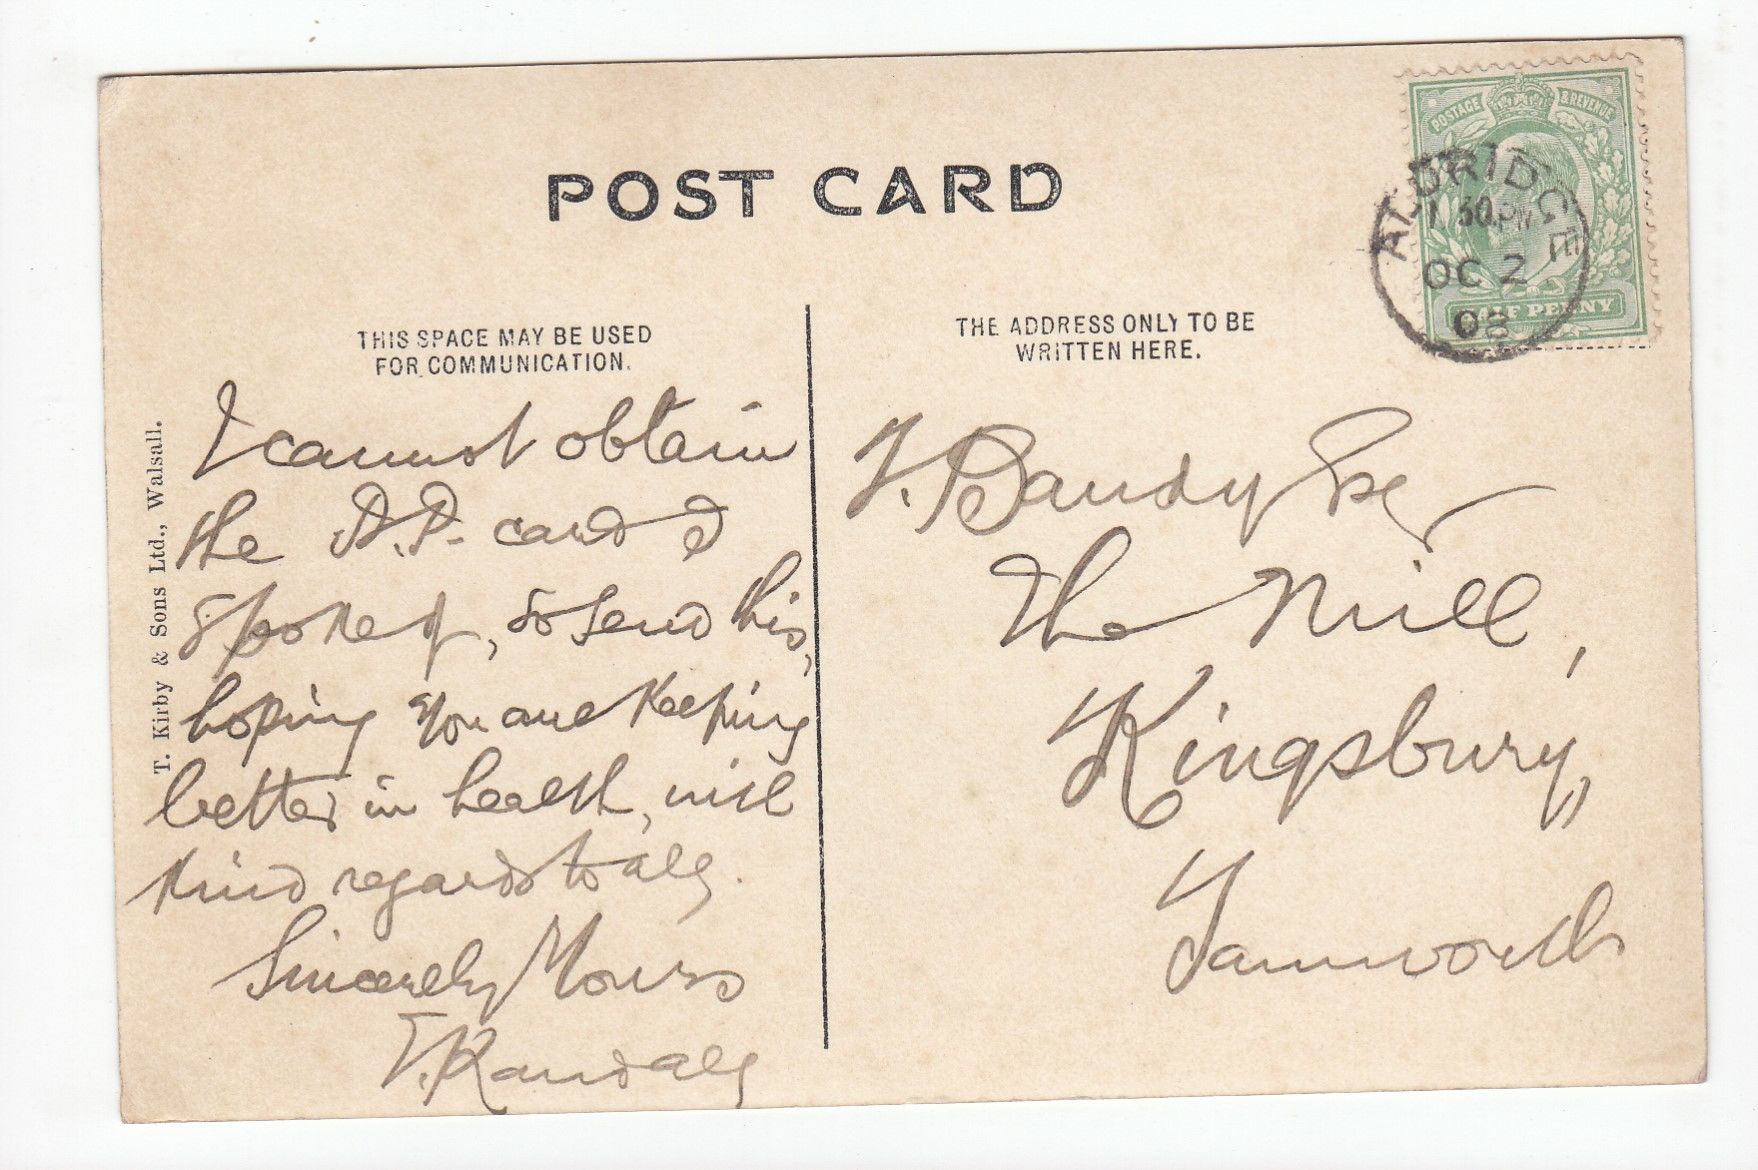 POST CARD
POSTAGE & REVENUE
HALF PENNY
ALDRIDGE
1.30 PM
OC 2
08
THIS SPACE MAY BE USED
FOR COMMUNICATION.
THE ADDRESS ONLY TO BE
WRITTEN HERE.
T. Kirby & Sons Ltd., Walsall.
I cannot obtain
the card I
spoke of, so send this,
hoping you are keeping
better in health, with
kind regards to all.
Sincerely Yours
T. Randall
Bandy Esq
The Mill,
Kingsbury,
Tamworth